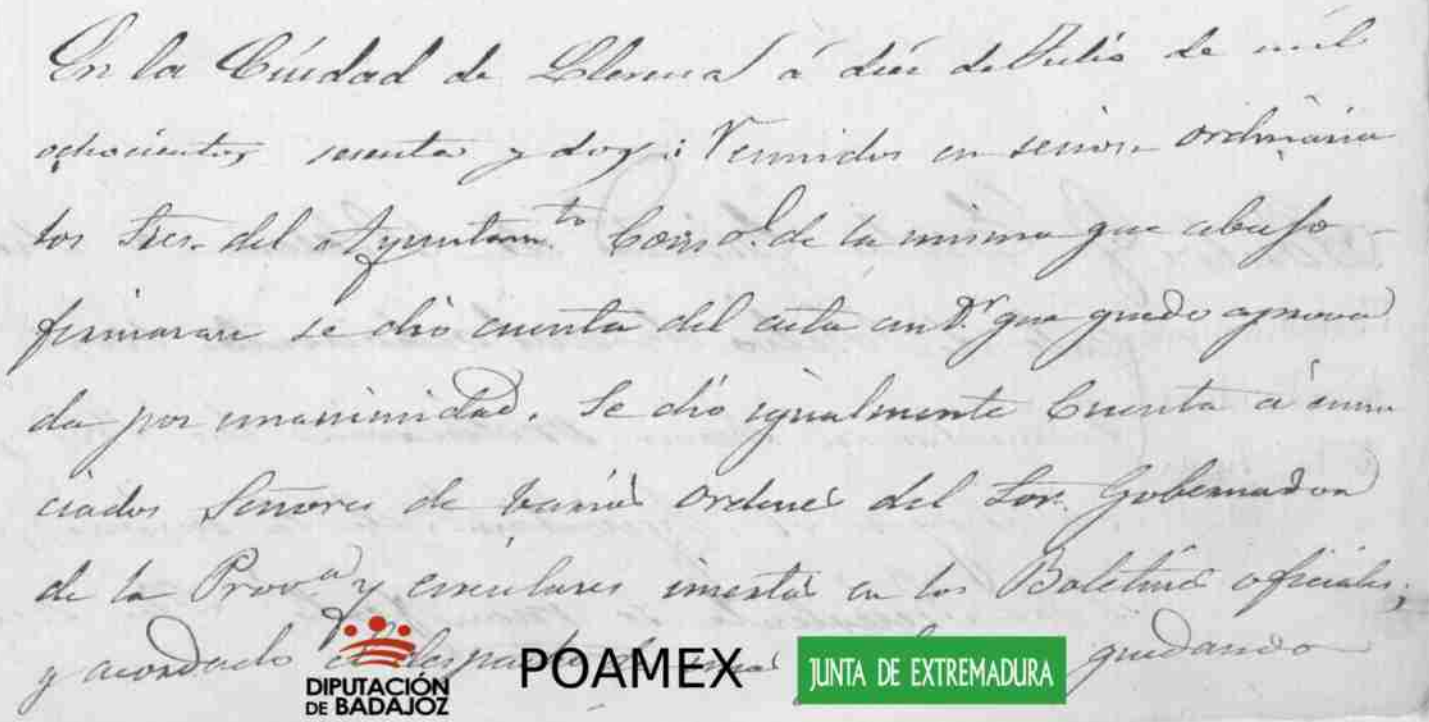 En la Ciudad de Llerena á diez de Julio de mil
ochocientos sesenta y dos: Reunidos en sesion ordinaria
los Sres. del Ayuntam.to Const.l de la misma que abajo
firmaran se dio cuenta del acta ant.r que quedo aprova
da por unanimidad. Se dió igualmente Cuenta á enun
ciados Señores de varias ordenes del Sor. Gobernador
de la Prov.a y circulares insertas en los Boletines oficiales,
y acordado el quedando
DIPUTACIÓN
DE BADAJOZ
POAMEX
JUNTA DE EXTREMADURA